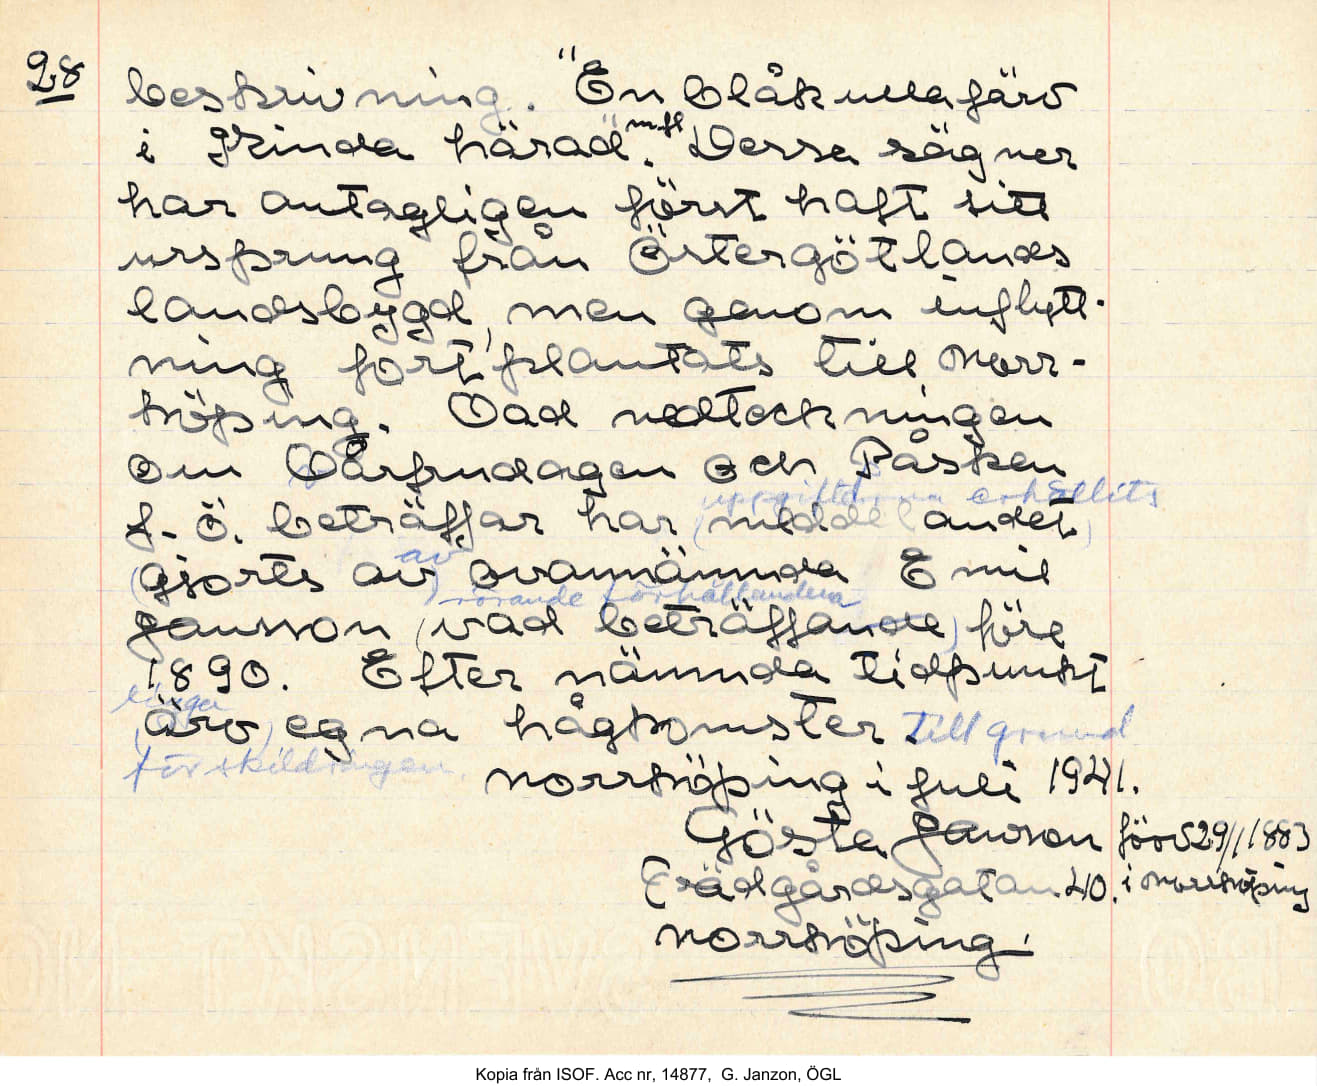 28
beskrivning. "En blåkullafärd
i Kinda härad". m fl Dessa sägner
har antagligen först haft sitt
ursprung från Östergötlands
landsbygd, men genom inflytt-
ning fortplantats till Norr-
köping. Vad nedteckningen
om Vårfrudagen och Påsken
uppgifterna erhållits
f. ö. beträffar har (meddelandet)
av
(gjorts av) ovannämnda Emil
rörande förhållandena
Janson (vad beträffande) före
1890. Efter nämnda tidpunkt
ligga
(äro) egna hågkomster till grund
för skildringen.
Norrköping i juli 1941.
Gösta Janson född 29/1 1883
Trädgårdsgatan 40. i Norrköping
Norrköping.
SVENSKT
Kopia från ISOF. Acc nr, 14877, G. Janzon, ÖGL